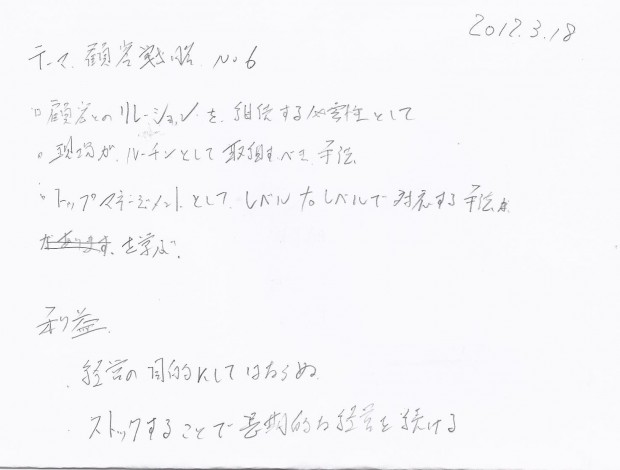 2012.3.18
テーマ 顧客戦略 No 6
○顧客とのリレーションを、維持する必要性として
○現場が、ルーチンとして取組すべき手法
○トップマネージメントとして、レベル to レベルで対応する手法
を学ぶ。
利益
・経営の目的にしてはならぬ
ストックすることで長期的な経営を続ける